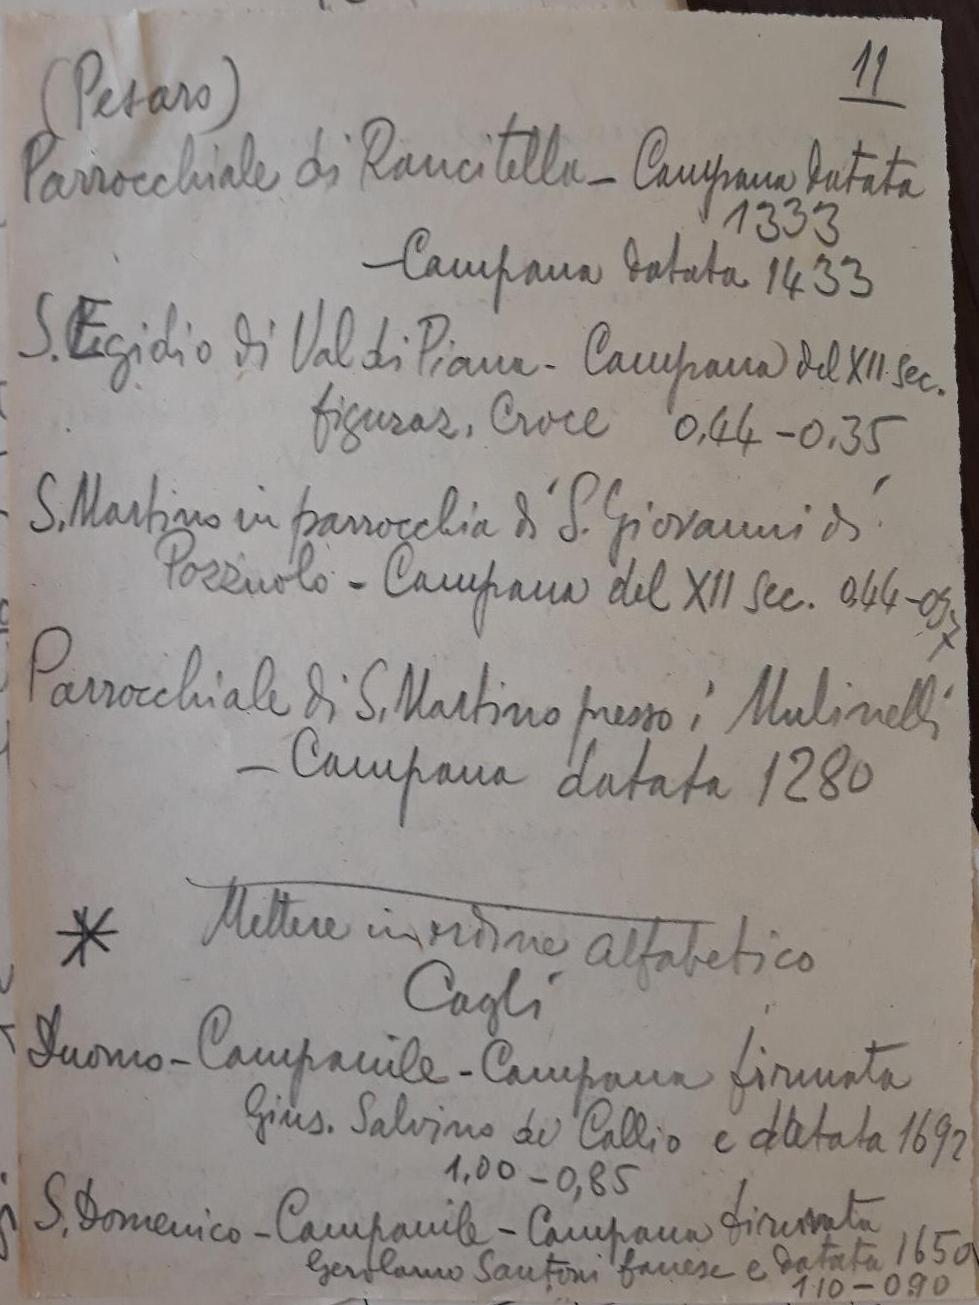 11
(Pesaro)
Parrocchiale di Rancitella - Campana datata
1333
- Campana datata 1433
S. Egidio di Val di Piana - Campana del XII sec.
figuraz. Croce 0,44 - 0,35
S. Martino in parrocchia di S. Giovanni di
Pozzuolo - Campana del XII sec. 0,44 - 0,37
Parrocchiale di S. Martino presso i Mulinelli
- Campana datata 1280
* Mettere in ordine alfabetico
Cagli
Duomo - Campanile - Campana firmata
Gius. Salvino de Callio e datata 1692
1,00 - 0,85
S. Domenico - Campanile - Campana firmata
Gerolamo Santoni fanese e datata 1650
1 10 - 0.90